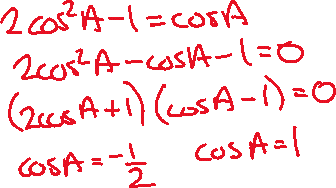 2cos²A-1=cosA
2cos²A-cosA-1=0
(2cosA+1)(cosA-1)=0
cosA=-1/2 cosA=1